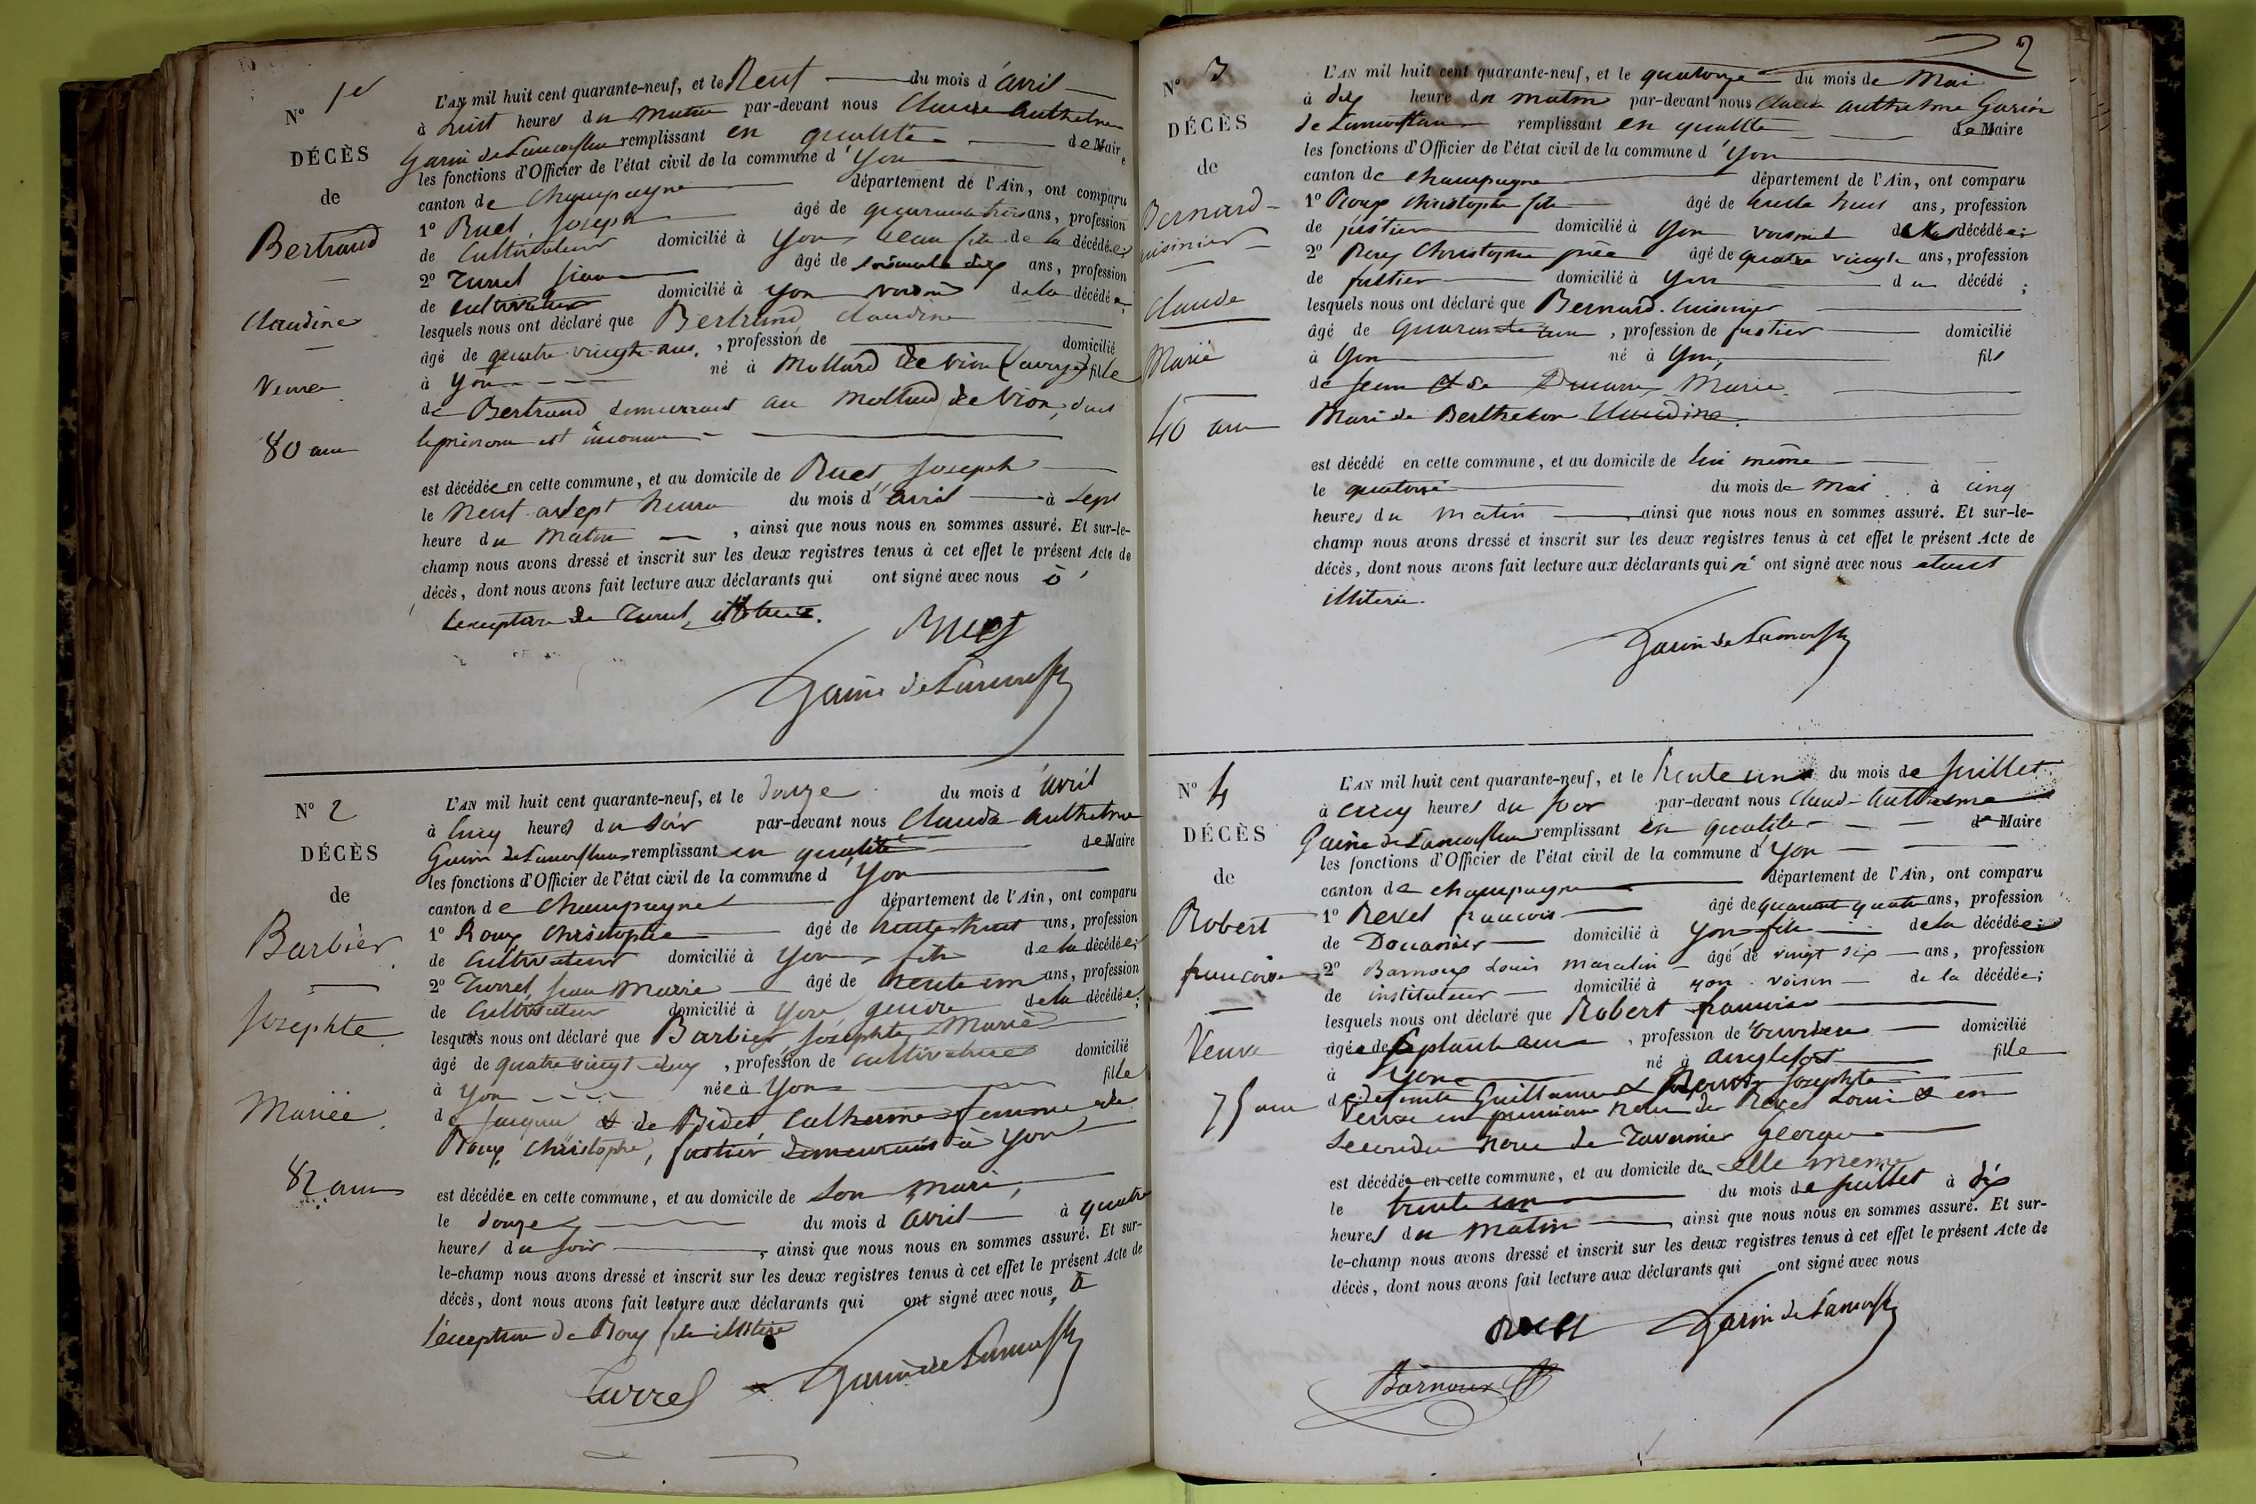 N° 1er
DÉCÈS
de
Bertrand
Claudine
Veuve
80 ans
L'AN mil huit cent quarante-neuf, et le Neuf du mois d'avril
à huit heures du matin par-devant nous Claude Anthelme
Garin de Lamorflan remplissant en qualité de Maire
les fonctions d'Officier de l'état civil de la commune d'Yon
canton de Champagne département de l'Ain, ont comparu
1° Ruet Joseph âgé de quarante trois ans, profession
de Cultivateur domicilié à Yon beau fils de la décédée;
2° Turrel Jean âgé de soixante dix ans, profession
de cultivateur domicilié à Yon voisin de la décédée;
lesquels nous ont déclaré que Bertrand Claudine
âgé de quatre vingts ans, profession de domicilié
à Yon né à Mollard de Vion (Savoye) fille
de Bertrand demeurant au Mollard de Vion dont
le prénom est inconnu
est décédée en cette commune, et au domicile de Ruet Joseph
le Neuf à sept heures du mois d'avril à sept
heure du matin, ainsi que nous nous en sommes assuré. Et sur-le-
champ nous avons dressé et inscrit sur les deux registres tenus à cet effet le présent Acte de
décès, dont nous avons fait lecture aux déclarants qui ont signé avec nous à
l'exception de Turrel, illitéré.
Ruet
Garin de Lamorfl
N° 2
DÉCÈS
de
Barbier
Josephte
Mariée
82 ans
L'AN mil huit cent quarante-neuf, et le douze du mois d'avril
à cinq heures du soir par-devant nous Claude Anthelme
Garin de Lamorflan remplissant en qualité de Maire
les fonctions d'Officier de l'état civil de la commune d'Yon
canton de Champagne département de l'Ain, ont comparu
1° Roux Christophe âgé de trente huit ans, profession
de Cultivateur domicilié à Yon fils de la décédée;
2° Turrel Jean Marie âgé de trente un ans, profession
de Cultivateur domicilié à Yon gendre de la décédée;
lesquels nous ont déclaré que Barbier Josephte Marie
âgé de quatre vingt deux, profession de cultivatrice domicilié
à Yon née à Yon fille
de Jacques & de Bidet Catherine femme de
Roux Christophe, justier demeurant à Yon
est décédée en cette commune, et au domicile de son mari,
le douze du mois d'avril à quatre
heures du soir, ainsi que nous nous en sommes assuré. Et sur-
le-champ nous avons dressé et inscrit sur les deux registres tenus à cet effet le présent Acte de
décès, dont nous avons fait lecture aux déclarants qui ont signé avec nous, à
l'exception de Roux fils illitéré
Turrel Garin de Lamorfl
2
N° 3
DÉCÈS
de
Bernard
cuisinier
Claude
Marié
40 ans
L'AN mil huit cent quarante-neuf, et le quatorze du mois de Mai
à dix heure du matin par-devant nous Claude Anthelme Garin
de Lamorflan remplissant en qualité de Maire
les fonctions d'Officier de l'état civil de la commune d'Yon
canton de Champagne département de l'Ain, ont comparu
1° Roux Christophe fils âgé de trente huit ans, profession
de justier domicilié à Yon voisin décédé;
2° Roux Christophe père âgé de quatre vingts ans, profession
de justier domicilié à Yon du décédé;
lesquels nous ont déclaré que Bernard Cuisinier
âgé de quarante un, profession de justier domicilié
à Yon né à Yon, fils
de Jean & de Marie
Mari de Berthelon Claudine.
est décédé en cette commune, et au domicile de lui même
le quatorze du mois de Mai à cinq
heures du matin, ainsi que nous nous en sommes assuré. Et sur-le-
champ nous avons dressé et inscrit sur les deux registres tenus à cet effet le présent Acte de
décès, dont nous avons fait lecture aux déclarants qui n'ont signé avec nous étant
illitérés.
Garin de Lamorfl
N° 4
DÉCÈS
de
Robert
françoise
Veuve
75 ans
L'AN mil huit cent quarante-neuf, et le trente un du mois de Juillet
à cinq heures du soir par-devant nous Claude Anthelme
Garin de Lamorflan remplissant en qualité de Maire
les fonctions d'Officier de l'état civil de la commune d'Yon
canton de Champagne département de l'Ain, ont comparu
1° Revel francois âgé de quarante quatre ans, profession
de Douanier domicilié à Yon fils de la décédée;
2° Barnoux Louis Marcelin âgé de vingt six ans, profession
de instituteur domicilié à Yon voisin de la décédée;
lesquels nous ont déclaré que Robert françoise
âgée de septante ans, profession de domicilié
à Yon né à anglefort fille
de défunts Guillaume & Josephte
Veuve en premières noces de Revel Louis & en
secondes noces de Tavernier George
est décédée en cette commune, et au domicile de elle meme
le trente un du mois de Juillet à dix
heures du matin, ainsi que nous nous en sommes assuré. Et sur-
le-champ nous avons dressé et inscrit sur les deux registres tenus à cet effet le présent Acte de
décès, dont nous avons fait lecture aux déclarants qui ont signé avec nous
Garin de Lamorfl
Barnoux